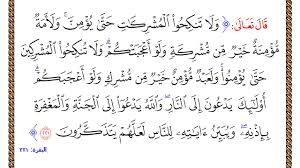 قَالَ تَعَالَى: ﴿ وَلَا تَنكِحُوا۟ ٱلْمُشْرِكَٰتِ حَتَّىٰ يُؤْمِنَّ ۚ وَلَأَمَةٌ
مُّؤْمِنَةٌ خَيْرٌ مِّن مُّشْرِكَةٍ وَلَوْ أَعْجَبَتْكُمْ ۗ وَلَا تُنكِحُوا۟ ٱلْمُشْرِكِينَ
حَتَّىٰ يُؤْمِنُوا۟ ۚ وَلَعَبْدٌ مُّؤْمِنٌ خَيْرٌ مِّن مُّشْرِكٍ وَلَوْ أَعْجَبَكُمْ ۗ
أُو۟لَٰٓئِكَ يَدْعُونَ إِلَى ٱلنَّارِ ۖ وَٱللَّهُ يَدْعُوٓا۟ إِلَى ٱلْجَنَّةِ وَٱلْمَغْفِرَةِ
بِإِذْنِهِۦ ۖ وَيُبَيِّنُ ءَايَٰتِهِۦ لِلنَّاسِ لَعَلَّهُمْ يَتَذَكَّرُونَ ﴿٢٢١﴾ ﴾
البقرة: ٢٢١